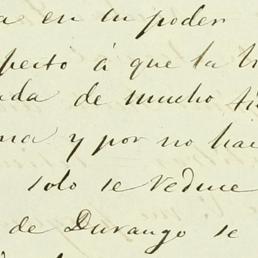 a en su poder
pecto á que la h
ada de mucho ti
ma y por no hac
solo se reduce
de Durango se